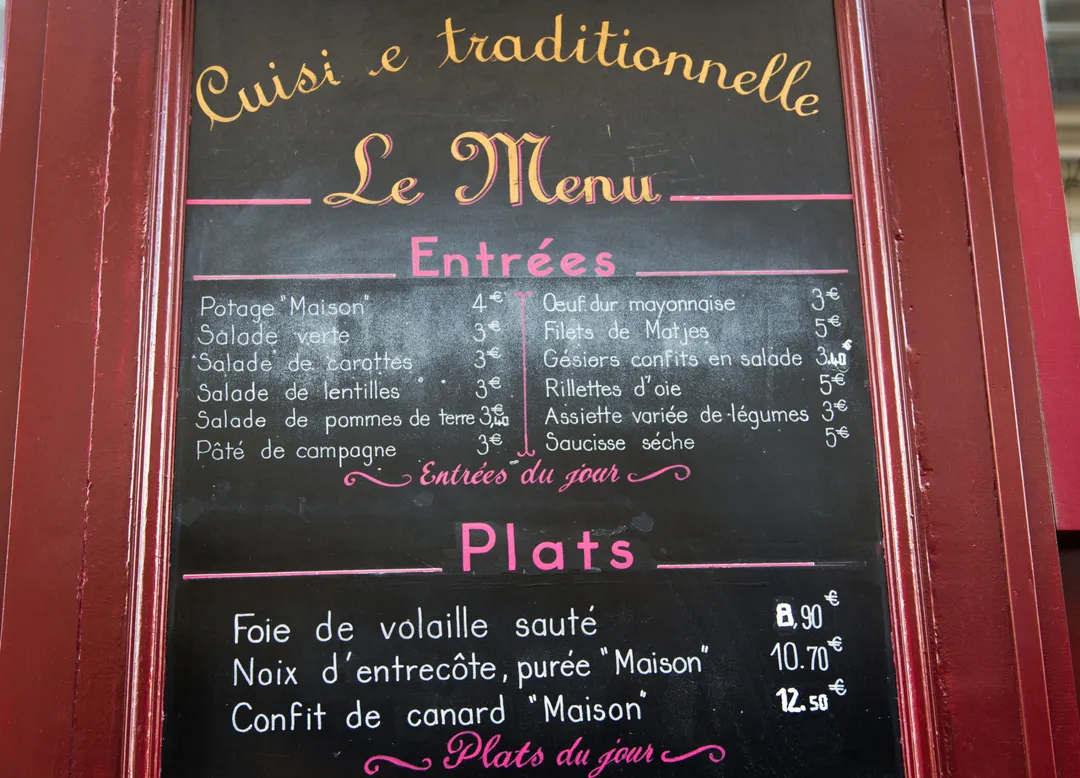 Cuisi e traditionnelle
Le Menu
Entrées
Potage "Maison" 4€
Salade verte 3€
"Salade" de carottes 3€
Salade de lentilles 3€
Salade de pommes de terre 3,40€
Pâté de campagne 3€
Œuf dur mayonnaise 3€
Filets de Matjes 5€
Gésiers confits en salade 3.40€
Rillettes d'oie 5€
Assiette variée de légumes 3€
Saucisse séche 5€
Entrées du jour
Plats
Foie de volaille sauté 8,90€
Noix d'entrecôte, purée "Maison" 10.70€
Confit de canard "Maison" 12.50€
Plats du jour